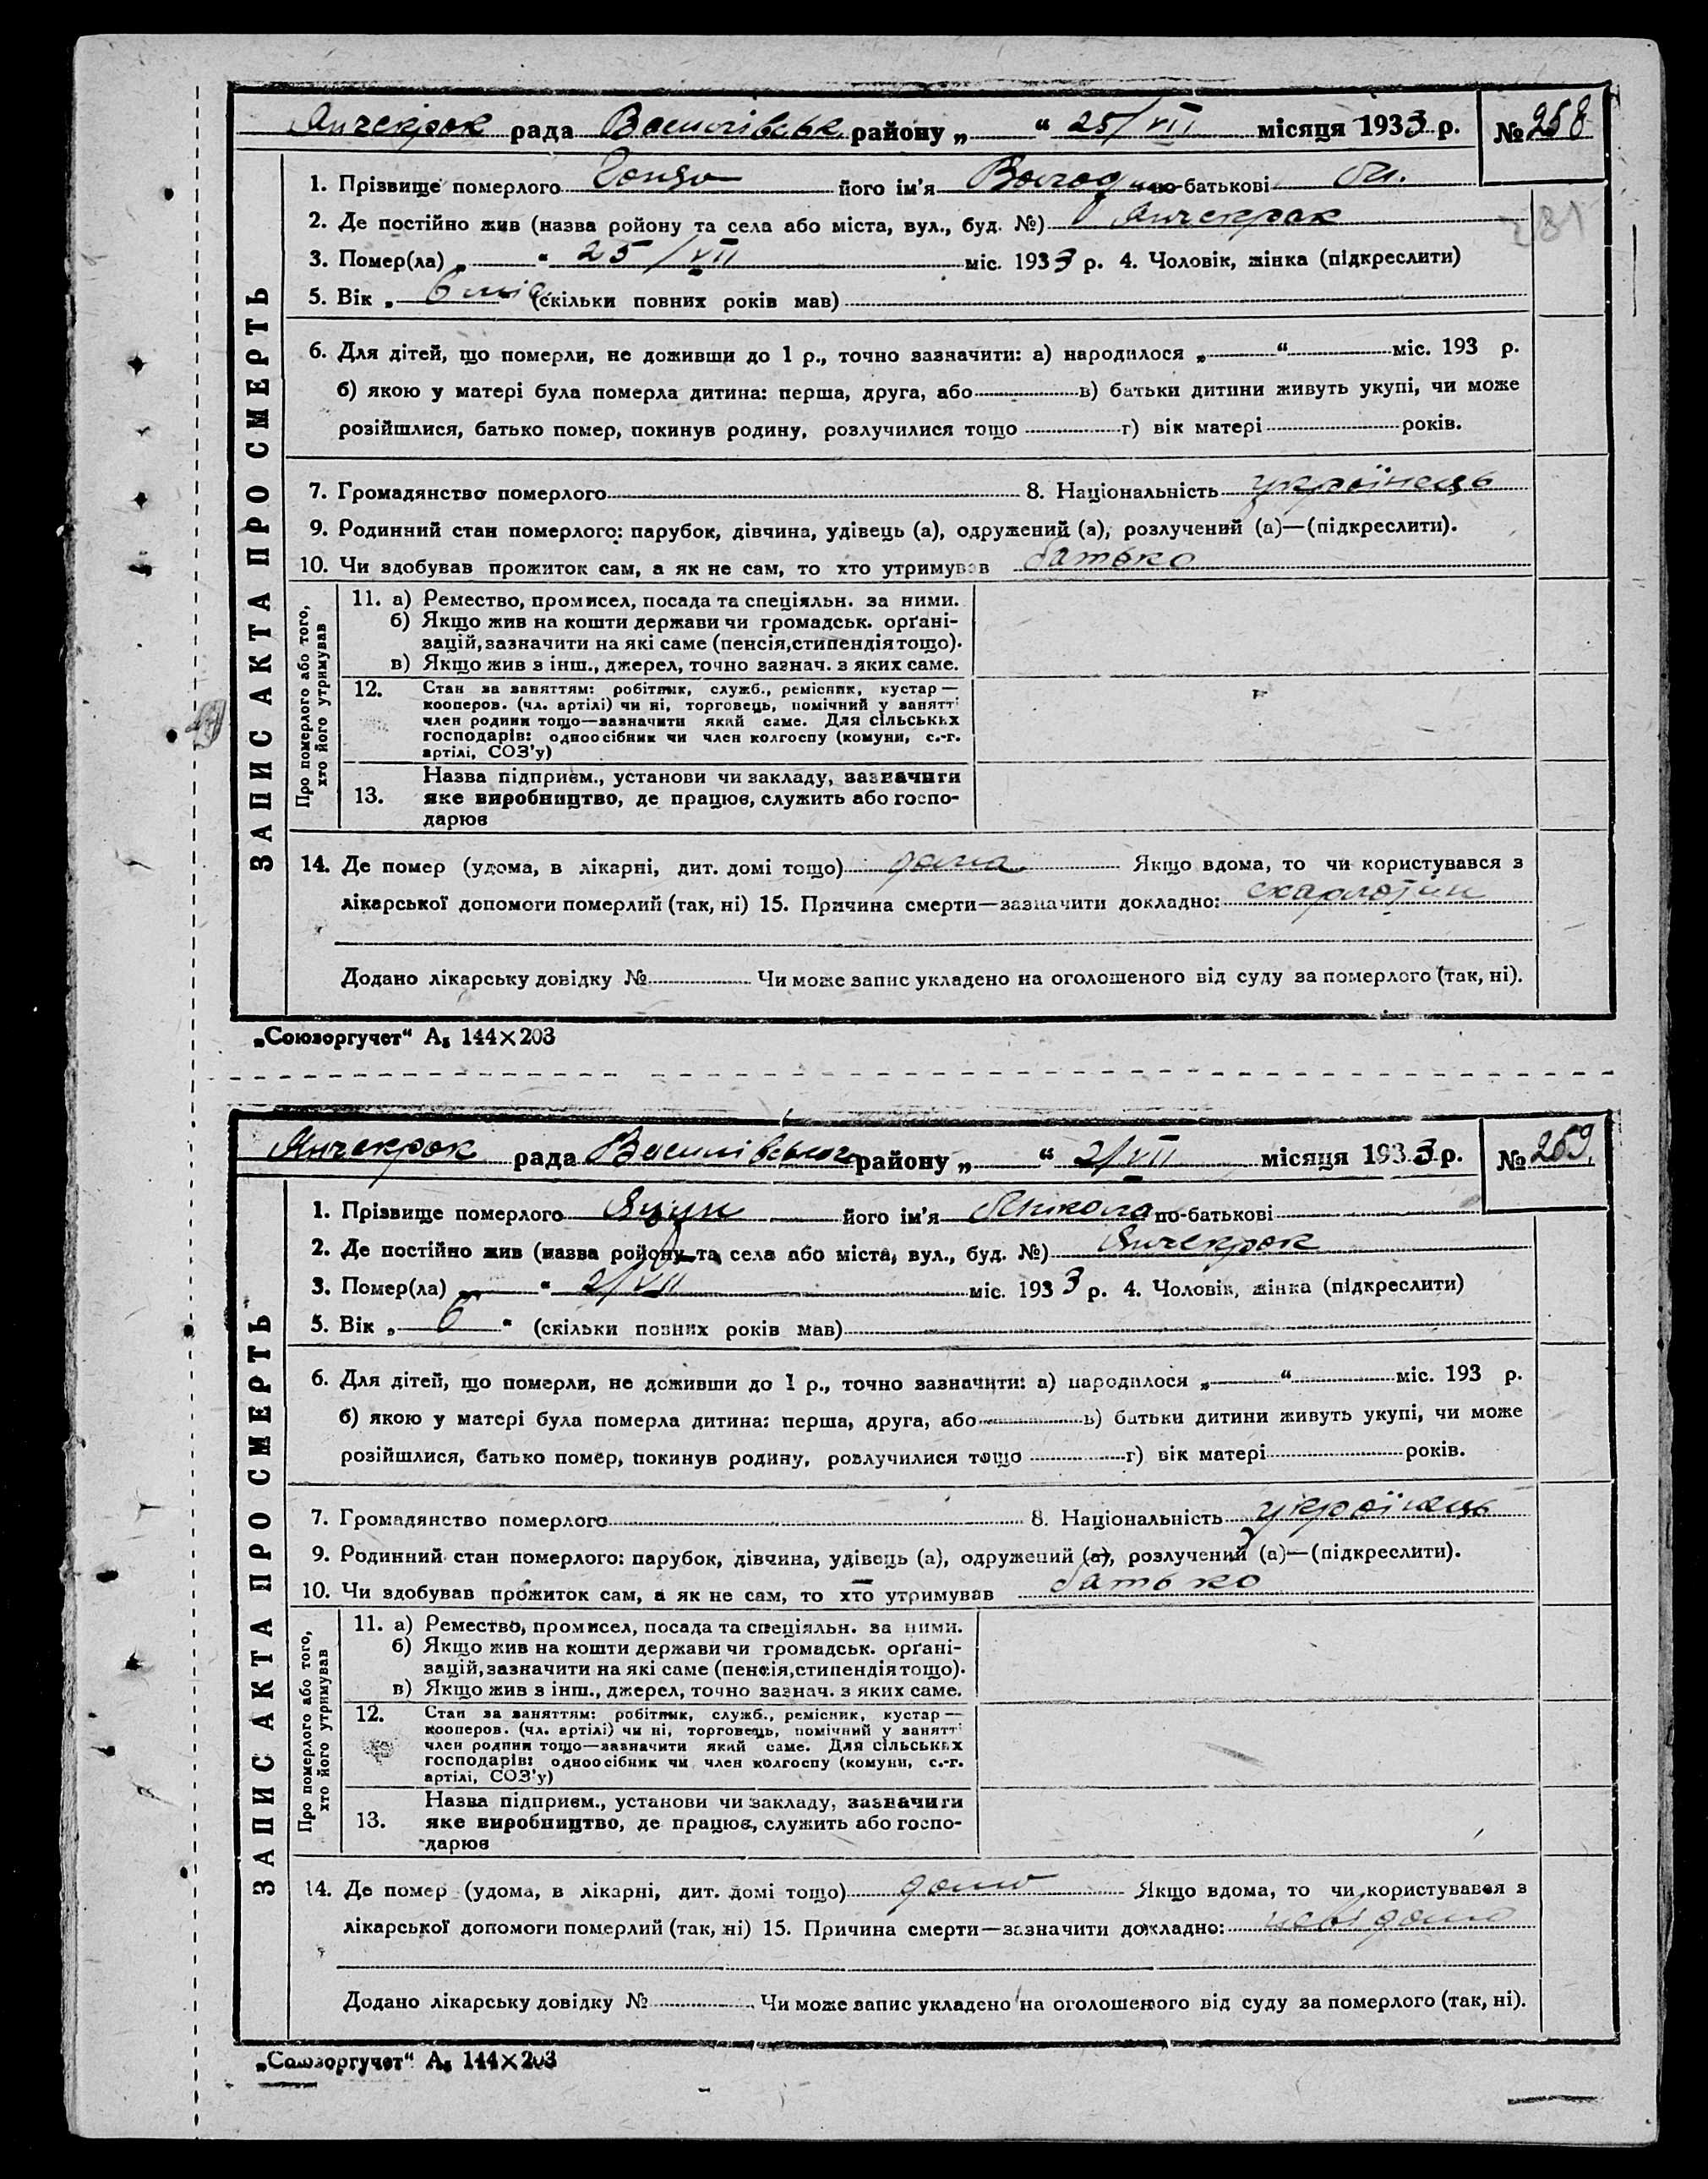 Янчекрак рада Василівськ. району „ “ 25/VII місяця 1933 р. № 258
1. Прізвище померлого його ім'я Волод по-батькові
2. Де постійно жив (назва району та села або міста, вул., буд. №) Янчекрак
3. Помер(ла) „ “ 25/VII міс. 1933 р. 4. Чоловік, жінка (підкреслити)
5. Вік „ 6 міс (скільки повних років мав)
6. Для дітей, що померли, не доживши до 1 р., точно зазначити: а) народилося „ “ міс. 193 р.
б) якою у матері була померла дитина: перша, друга, або в) батьки дитини живуть укупі, чи може
розійшлися, батько помер, покинув родину, розлучилися тощо г) вік матері років.
7. Громадянство померлого 8. Національність українець
9. Родинний стан померлого: парубок, дівчина, удівець (а), одружений (а), розлучений (а)—(підкреслити).
10. Чи здобував прожиток сам, а як не сам, то хто утримував батько
11. а) Ремество, промисел, посада та спеціяльн. за ними.
б) Якщо жив на кошти держави чи громадськ. орґані-
зацій, зазначити на які саме (пенсія, стипендія тощо).
в) Якщо жив з інш., джерел, точно зазнач. з яких саме.
12. Стан за заняттям: робітник, служб., ремісник, кустар—
кооперов. (чл. артілі) чи ні, торговець, помічний у занятті
член родини тощо—зазначити який саме. Для сільських
господарів: одноосібник чи член колгоспу (комуни, с.-г.
артілі, СОЗ'у)
Назва підприєм., установи чи закладу, зазначити
13. яке виробництво, де працює, служить або госпо-
дарює
14. Де помер (удома, в лікарні, дит. домі тощо) дома Якщо вдома, то чи користувався з
лікарської допомоги померлий (так, ні) 15. Причина смерти—зазначити докладно: скарлотін
Додано лікарську довідку № Чи може запис укладено на оголошеного від суду за померлого (так, ні).
ЗАПИС АКТА ПРО СМЕРТЬ
Про померлого або того,
хто його утримував
281
„Союзоргучет“ А₅ 144×203
Янчекрак рада Василівського району „ “ 2/VII місяця 1933 р. № 259
1. Прізвище померлого його ім'я Микола по-батькові
2. Де постійно жив (назва району та села або міста, вул., буд. №) Янчекрак
3. Помер(ла) „ “ 2/VII міс. 1933 р. 4. Чоловік, жінка (підкреслити)
5. Вік „ 6 “ (скільки повних років мав)
6. Для дітей, що померли, не доживши до 1 р., точно зазначити: а) народилося „ “ міс. 193 р.
б) якою у матері була померла дитина: перша, друга, або в) батьки дитини живуть укупі, чи може
розійшлися, батько помер, покинув родину, розлучилися тощо г) вік матері років.
7. Громадянство померлого 8. Національність українець
9. Родинний стан померлого: парубок, дівчина, удівець (а), одружений (а), розлучений (а)—(підкреслити).
10. Чи здобував прожиток сам, а як не сам, то хто утримував батько
11. а) Ремество, промисел, посада та спеціяльн. за ними.
б) Якщо жив на кошти держави чи громадськ. орґані-
зацій, зазначити на які саме (пенсія, стипендія тощо).
в) Якщо жив з інш., джерел, точно зазнач. з яких саме.
12. Стан за заняттям: робітник, служб., ремісник, кустар—
кооперов. (чл. артілі) чи ні, торговець, помічний у занятті
член родини тощо—зазначити який саме. Для сільських
господарів: одноосібник чи член колгоспу (комуни, с.-г.
артілі, СОЗ'у)
Назва підприєм., установи чи закладу, зазначити
13. яке виробництво, де працює, служить або госпо-
дарює
14. Де помер (удома, в лікарні, дит. домі тощо) дома Якщо вдома, то чи користувався з
лікарської допомоги померлий (так, ні) 15. Причина смерти—зазначити докладно: невідомо
Додано лікарську довідку № Чи може запис укладено на оголошеного від суду за померлого (так, ні).
ЗАПИС АКТА ПРО СМЕРТЬ
Про померлого або того,
хто його утримував
„Союзоргучет“ А₅ 144×203